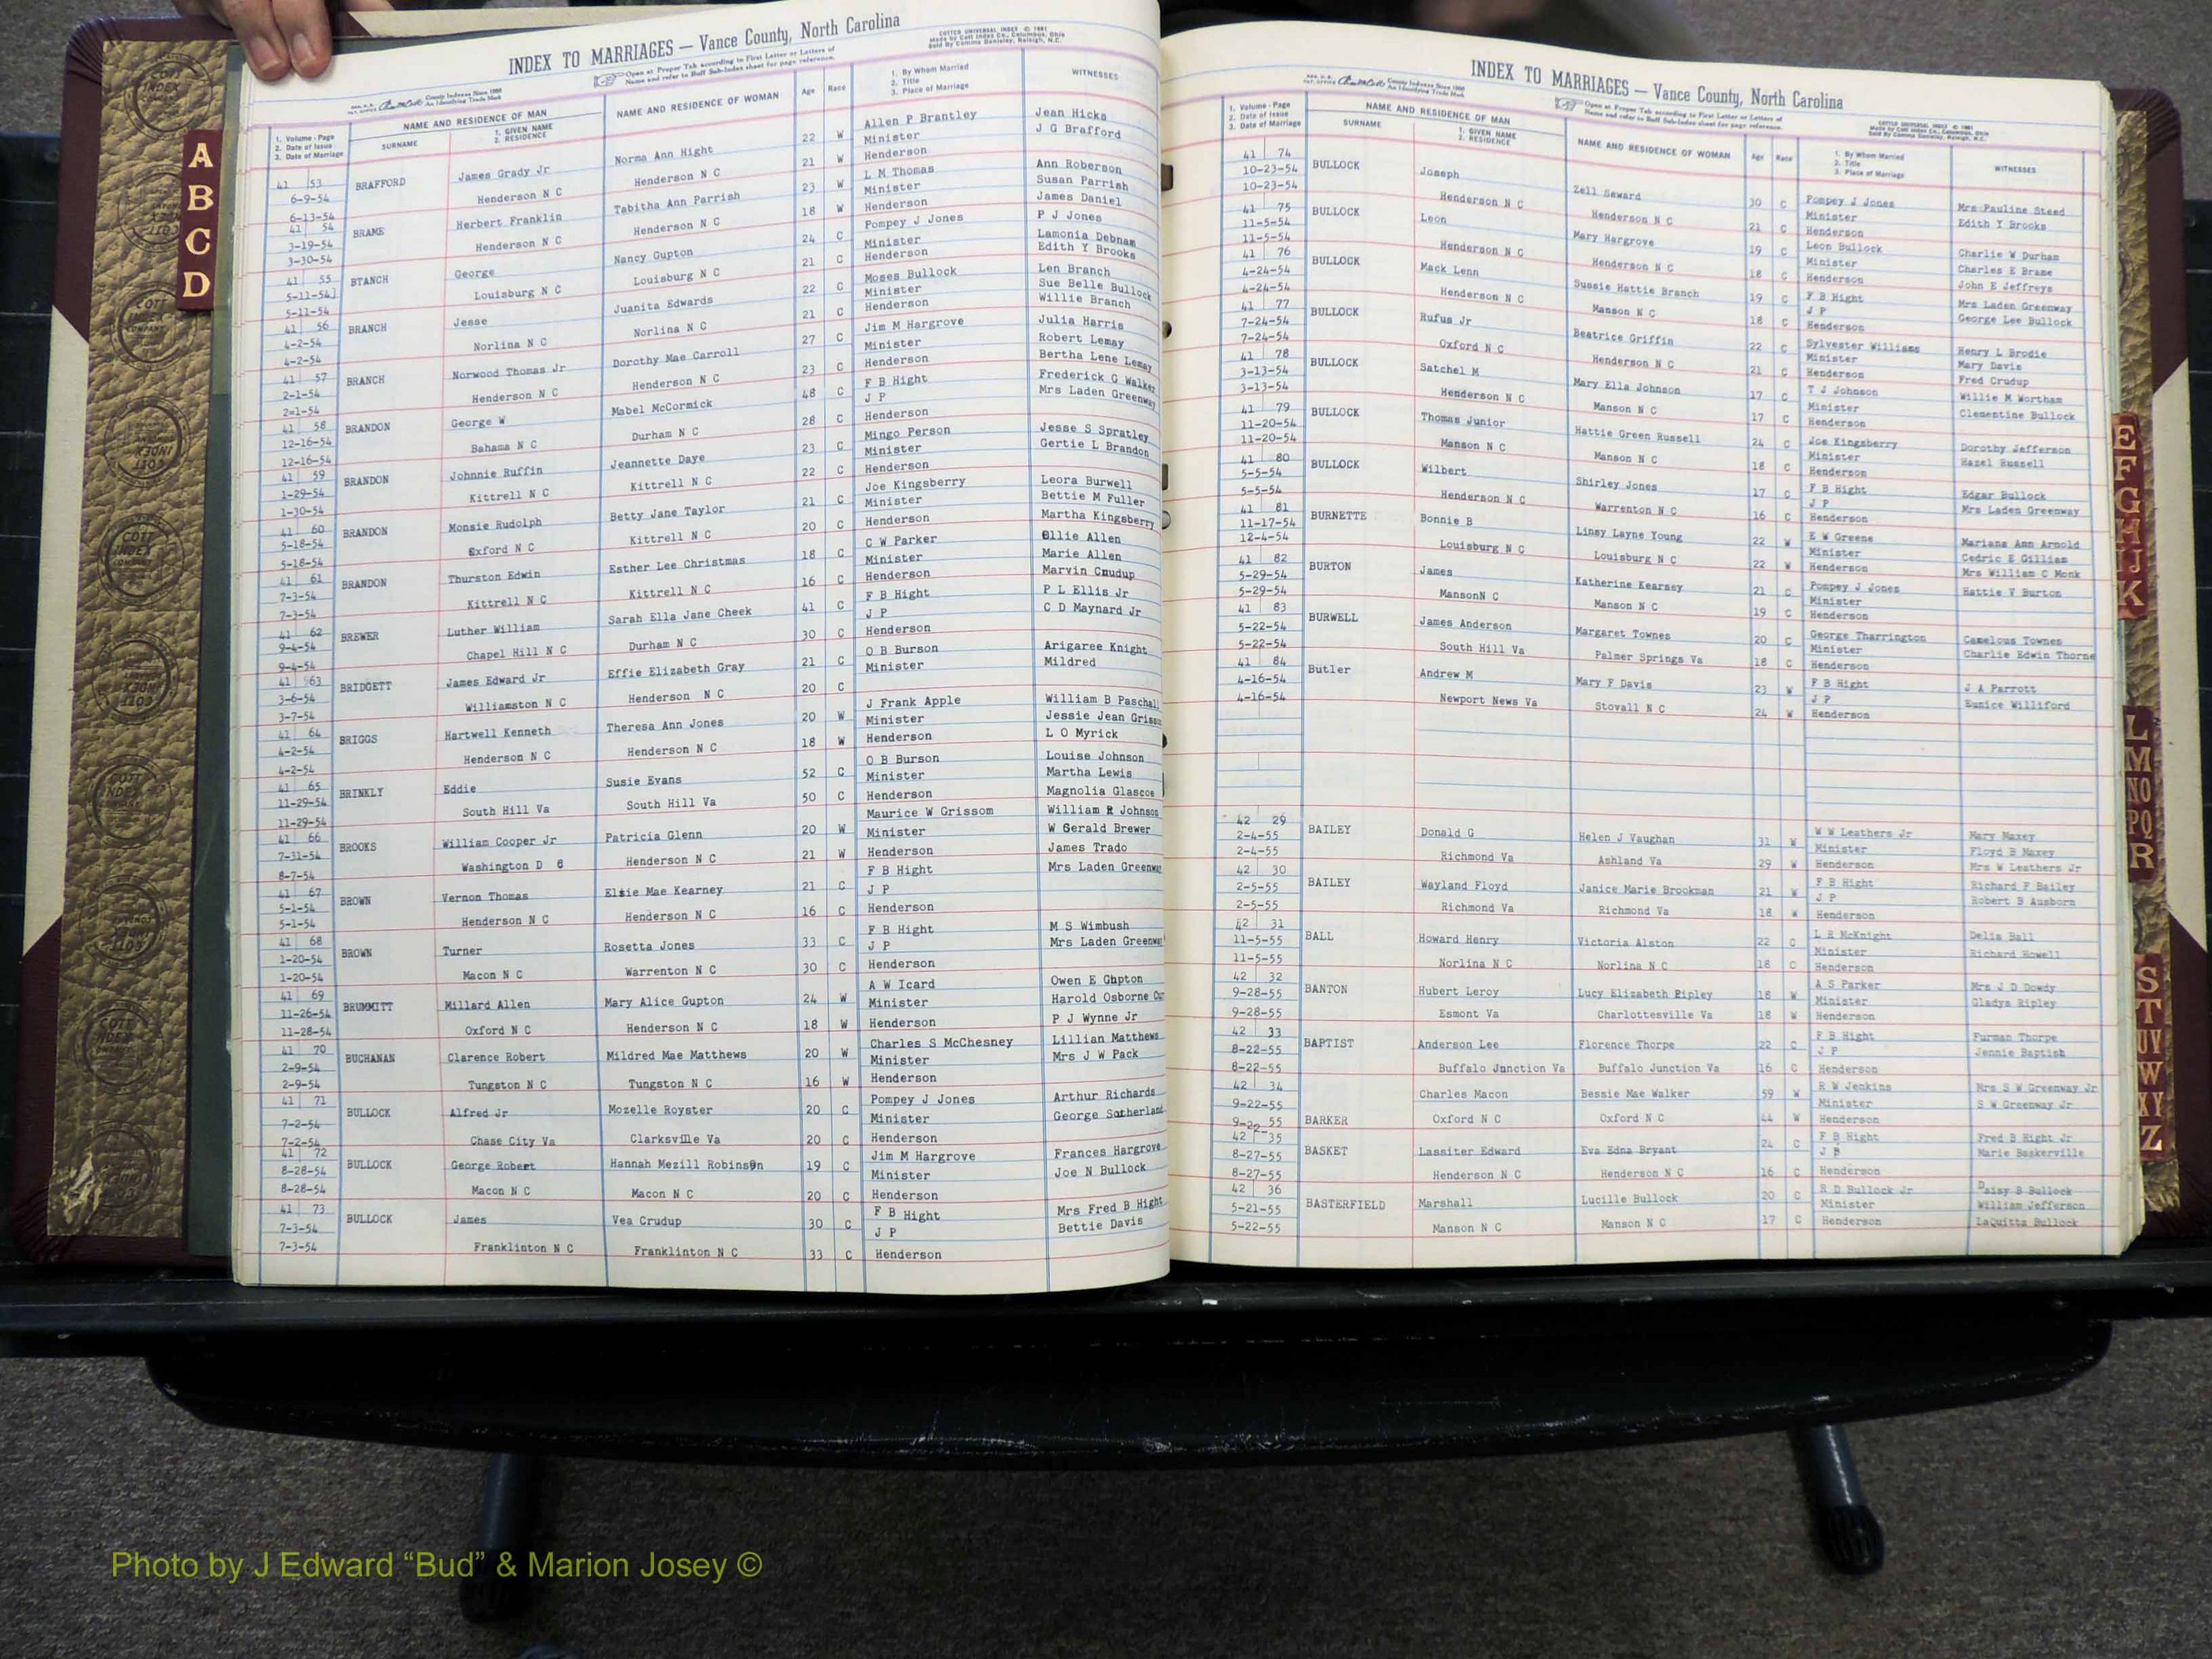 INDEX TO MARRIAGES — Vance County, North Carolina
Open at Proper Tab according to First Letter or Letters of
Name and refer to Buff Sub-Index sheet for page reference.
COTT'S UNIVERSAL INDEX © 1981
Made by Cott Index Co., Columbus, Ohio
Sold By Comma Danieley, Raleigh, N.C.
County Indexes Since 1888
An Identifying Trade Mark
1. Volume - Page
2. Date of Issue
3. Date of Marriage
NAME AND RESIDENCE OF MAN
SURNAME
1. GIVEN NAME
2. RESIDENCE
NAME AND RESIDENCE OF WOMAN
Age Race
1. By Whom Married
2. Title
3. Place of Marriage
WITNESSES
41 53 BRAFFORD James Grady Jr Norma Ann Hight 22 W Allen P Brantley Jean Hicks
6-9-54 Minister J G Brafford
6-13-54 Henderson N C Henderson N C 21 W Henderson
41 54 BRAME Herbert Franklin Tabitha Ann Parrish 23 W L M Thomas Ann Roberson
3-19-54 Minister Susan Parrish
3-30-54 Henderson N C Henderson N C 18 W Henderson James Daniel
41 55 BTANCH George Nancy Gupton 24 C Pompey J Jones P J Jones
5-11-54] Minister Lamonia Debnam
5-11-54 Louisburg N C Louisburg N C 21 C Henderson Edith Y Brooks
41 56 BRANCH Jesse Juanita Edwards 22 C Moses Bullock Len Branch
4-2-54 Minister Sue Belle Bullock
4-2-54 Norlina N C Norlina N C 21 C Henderson Willie Branch
41 57 BRANCH Norwood Thomas Jr Dorothy Mae Carroll 27 C Jim M Hargrove Julia Harris
2-1-54 Minister Robert Lemay
2=1-54 Henderson N C Henderson N C 23 C Henderson Bertha Lene Lemay
41 58 BRANDON George W Mabel McCormick 48 C F B Hight Frederick G Walker
12-16-54 J P Mrs Laden Greenway
12-16-54 Bahama N C Durham N C 28 C Henderson
41 59 BRANDON Johnnie Ruffin Jeannette Daye 23 C Mingo Person Jesse S Spratley
1-29-54 Minister Gertie L Brandon
1-30-54 Kittrell N C Kittrell N C 22 C Henderson
41 60 BRANDON Monsie Rudolph Betty Jane Taylor 21 C Joe Kingsberry Leora Burwell
5-18-54 Minister Bettie M Fuller
5-18-54 Oxford N C Kittrell N C 20 C Henderson Martha Kingsberry
41 61 BRANDON Thurston Edwin Esther Lee Christmas 18 C C W Parker Ollie Allen
7-3-54 Minister Marie Allen
7-3-54 Kittrell N C Kittrell N C 16 C Henderson Marvin Crudup
41 62 BREWER Luther William Sarah Ella Jane Cheek 41 C F B Hight P L Ellis Jr
9-4-54 J P C D Maynard Jr
9-4-54 Chapel Hill N C Durham N C 30 C Henderson
41 63 BRIDGETT James Edward Jr Effie Elizabeth Gray 21 C O B Burson Arigaree Knight
3-6-54 Minister Mildred
3-7-54 Williamston N C Henderson N C 20 C
41 64 BRIGGS Hartwell Kenneth Theresa Ann Jones 20 W J Frank Apple William B Paschall
4-2-54 Minister Jessie Jean
4-2-54 Henderson N C Henderson N C 18 W Henderson L O Myrick
41 65 BRINKLY Eddie Susie Evans 52 C O B Burson Louise Johnson
11-29-54 Minister Martha Lewis
11-29-54 South Hill Va South Hill Va 50 C Henderson Magnolia Glascoe
41 66 BROOKS William Cooper Jr Patricia Glenn 20 W Maurice W Grissom William R Johnson
7-31-54 Minister W Gerald Brewer
8-7-54 Washington D C Henderson N C 21 W Henderson James Trado
41 67 BROWN Vernon Thomas Elsie Mae Kearney 21 C F B Hight Mrs Laden Greenway
5-1-54 J P
5-1-54 Henderson N C Henderson N C 16 C Henderson
41 68 BROWN Turner Rosetta Jones 33 C F B Hight M S Wimbush
1-20-54 J P Mrs Laden Greenway
1-20-54 Macon N C Warrenton N C 30 C Henderson
41 69 BRUMMITT Millard Allen Mary Alice Gupton 24 W A W Icard Owen E Gupton
11-26-54 Minister Harold Osborne
11-28-54 Oxford N C Henderson N C 18 W Henderson P J Wynne Jr
41 70 BUCHANAN Clarence Robert Mildred Mae Matthews 20 W Charles S McChesney Lillian Matthews
2-9-54 Minister Mrs J W Pack
2-9-54 Tungston N C Tungston N C 16 W Henderson
41 71 BULLOCK Alfred Jr Mozelle Royster 20 C Pompey J Jones Arthur Richards
7-2-54 Minister George Sutherland
7-2-54 Chase City Va Clarksville Va 20 C Henderson
41 72 BULLOCK George Robert Hannah Mezill Robinson 19 C Jim M Hargrove Frances Hargrove
8-28-54 Minister Joe N Bullock
8-28-54 Macon N C Macon N C 20 C Henderson
41 73 BULLOCK James Vea Crudup 30 C F B Hight Mrs Fred B Hight
7-3-54 J P Bettie Davis
7-3-54 Franklinton N C Franklinton N C 33 C Henderson
INDEX TO MARRIAGES — Vance County, North Carolina
County Indexes Since 1888
An Identifying Trade Mark
Open at Proper Tab according to First Letter or Letters of
Name and refer to Buff Sub-Index sheet for page reference.
COTT'S UNIVERSAL INDEX © 1981
Made by Cott Index Co., Columbus, Ohio
Sold By Comma Danieley, Raleigh, N.C.
1. Volume - Page
2. Date of Issue
3. Date of Marriage
NAME AND RESIDENCE OF MAN
SURNAME
1. GIVEN NAME
2. RESIDENCE
NAME AND RESIDENCE OF WOMAN
Age Race
1. By Whom Married
2. Title
3. Place of Marriage
WITNESSES
41 74 BULLOCK Joseph Zell Seward 30 C Pompey J Jones Mrs Pauline Steed
10-23-54 Minister Edith Y Brooks
10-23-54 Henderson N C Henderson N C 21 C Henderson
41 75 BULLOCK Leon Mary Hargrove 19 C Leon Bullock Charlie W Durham
11-5-54 Minister Charles E Brame
11-5-54 Henderson N C Henderson N C 18 C Henderson John E Jeffreys
41 76 BULLOCK Mack Lenn Sussie Hattie Branch 19 C F B Hight Mrs Laden Greenway
4-24-54 J P George Lee Bullock
4-24-54 Henderson N C Manson N C 18 C Henderson
41 77 BULLOCK Rufus Jr Beatrice Griffin 22 C Sylvester Williams Henry L Brodie
7-24-54 Minister Mary Davis
7-24-54 Oxford N C Henderson N C 21 C Henderson Fred Crudup
41 78 BULLOCK Satchel M Mary Ella Johnson 17 C T J Johnson Willie M Wortham
3-13-54 Minister Clementine Bullock
3-13-54 Henderson N C Manson N C 17 C Henderson
41 79 BULLOCK Thomas Junior Hattie Green Russell 24 C Joe Kingsberry Dorothy Jefferson
11-20-54 Minister Hazel Russell
11-20-54 Manson N C Manson N C 18 C Henderson
41 80 BULLOCK Wilbert Shirley Jones 17 C F B Hight Edgar Bullock
5-5-54 J P Mrs Laden Greenway
5-5-54 Henderson N C Warrenton N C 16 C Henderson
41 81 BURNETTE Bonnie B Linsy Layne Young 22 W E W Greene Mariana Ann Arnold
11-17-54 Minister Cedric E Gilliam
12-4-54 Louisburg N C Louisburg N C 22 W Henderson Mrs William C Monk
41 82 BURTON James Katherine Kearsey 21 C Pompey J Jones Hattie V Burton
5-29-54 Minister
5-29-54 MansonN C Manson N C 19 C Henderson
41 83 BURWELL James Anderson Margaret Townes 20 C George Tharrington Camelous Townes
5-22-54 Minister Charlie Edwin Thorne
5-22-54 South Hill Va Palmer Springs Va 18 C Henderson
41 84 Butler Andrew M Mary F Davis 23 W F B Hight J A Parrott
4-16-54 J P Eunice Williford
4-16-54 Newport News Va Stovall N C 24 W Henderson
42 29 BAILEY Donald G Helen J Vaughan 31 W W W Leathers Jr Mary Maxey
2-4-55 Minister Floyd B Maxey
2-4-55 Richmond Va Ashland Va 29 W Henderson Mrs W Leathers Jr
42 30 BAILEY Wayland Floyd Janice Marie Brookman 21 W F B Hight Richard F Bailey
2-5-55 J P Robert B Ausborn
2-5-55 Richmond Va Richmond Va 18 W Henderson
42 31 BALL Howard Henry Victoria Alston 22 C L R McKnight Delia Ball
11-5-55 Minister Richard Howell
11-5-55 Norlina N C Norlina N C 18 C Henderson
42 32 BANTON Hubert Leroy Lucy Elizabeth Ripley 18 W A S Parker Mrs J D Dowdy
9-28-55 Minister Gladys Ripley
9-28-55 Esmont Va Charlottesville Va 18 W Henderson
42 33 BAPTIST Anderson Lee Florence Thorpe 22 C F B Hight Furman Thorpe
8-22-55 J P Jennie Baptish
8-22-55 Buffalo Junction Va Buffalo Junction Va 16 C Henderson
42 34 Charles Macon Bessie Mae Walker 59 W R W Jenkins Mrs S W Greenway Jr
9-22-55 Minister S W Greenway Jr
9-22-55 BARKER Oxford N C Oxford N C 44 W Henderson
42 35 BASKET Lassiter Edward Eva Edna Bryant 24 C F B Hight Fred B Hight Jr
8-27-55 J P Marie Baskerville
8-27-55 Henderson N C Henderson N C 16 C Henderson
42 36 BASTERFIELD Marshall Lucille Bullock 20 C R D Bullock Jr Daisy B Bullock
5-21-55 Minister William Jefferson
5-22-55 Manson N C Manson N C 17 C Henderson LaQuitta Bullock
A
B
C
D
E
F
G
H
IJ
K
L
M
NO
PQ
R
S
T
UV
W
XY
Z
COTT
INDEX
COMPANY
Photo by J Edward “Bud” & Marion Josey ©